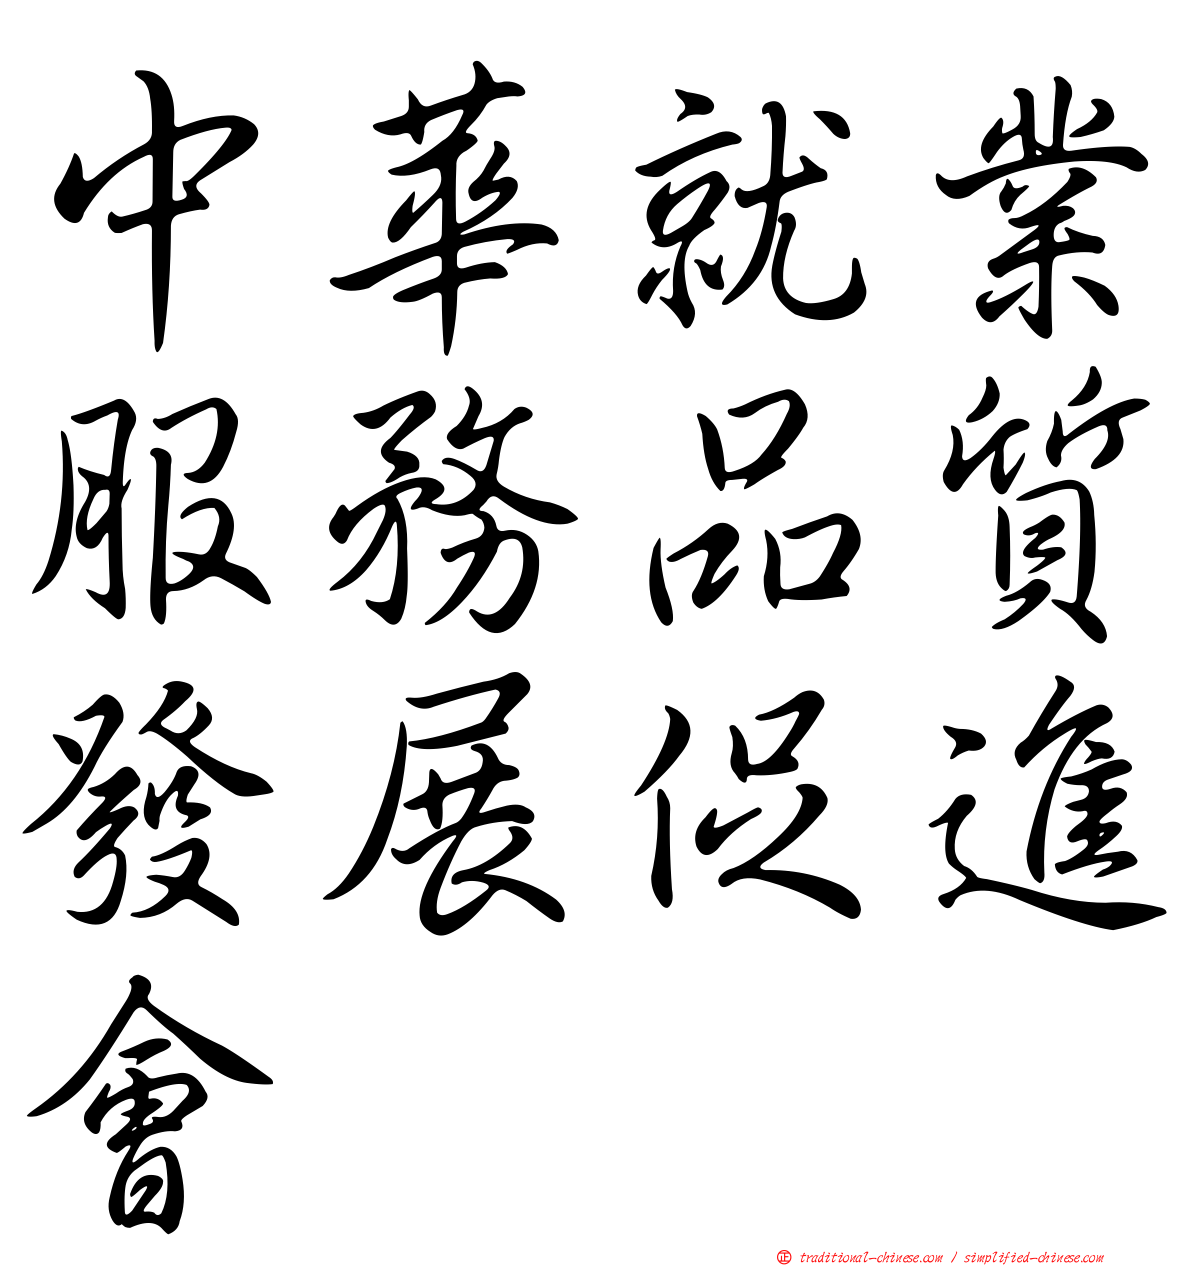 中華就業
服務品質
發展促進
會
㊣ traditional-chinese.com / simplified-chinese.com